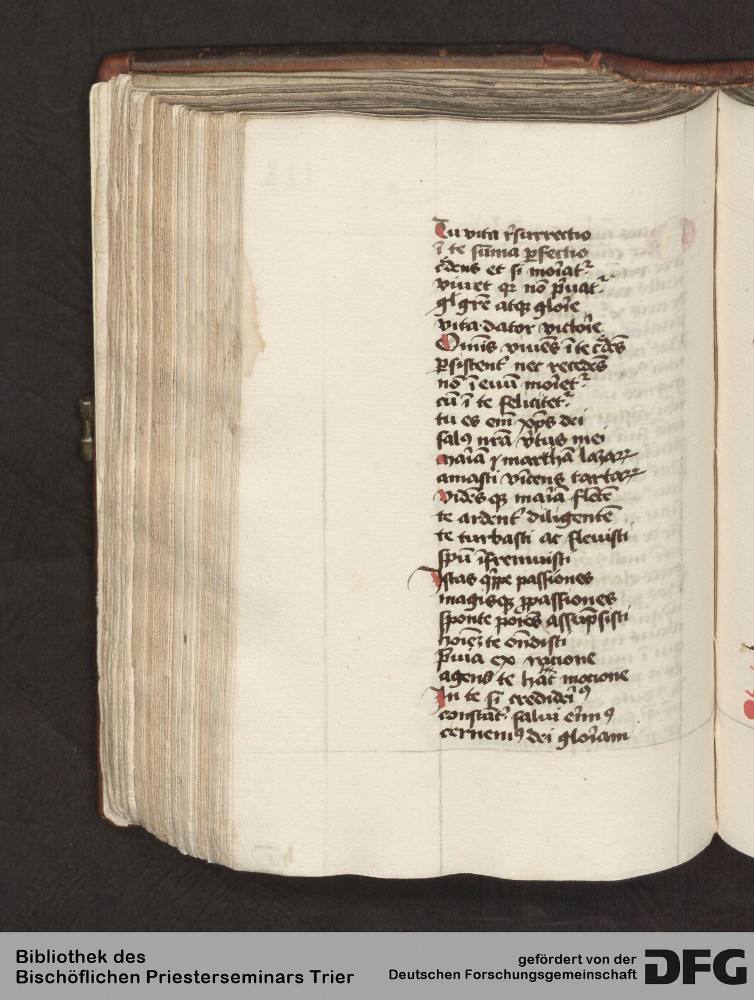 Tu vita r̄surrectio
ī te sūma ꝑfectio
c̄dens et si moriat᷑
viuet qꝛ nō p̄uat᷑
gl̄ grē atqꝫ glorie
vita dator victorie
Om̄is viuēs ī te c̄dēs
ꝑsistent᷑ nec recedēs
nō ī euū moriet᷑
cū ī te felicitet᷑
tu es em̄ xp̄s dei
salꝰ nr̄a v̄tus mei
mariā ⁊ marthā lazaꝝ
amasti vīcens tartaꝝ
vidēsqꝫ mariā flētē
te ardent᷑ diligentē
te turbasti ac fleuisti
sp̄u īfremuisti
Istas q̄ppe passiones
magisqꝫ ꝓpassiones
sponte poti᷑ assūp̄sisti
hoīēꝫ te on̄disti
p̄uia ex racione
agens te hāc motione
In te si crediderimꝰ
constāt᷑ salui erimꝰ
cernemꝰ dei gloriam
Bibliothek des
Bischöflichen Priesterseminars Trier
gefördert von der
Deutschen Forschungsgemeinschaft
DFG